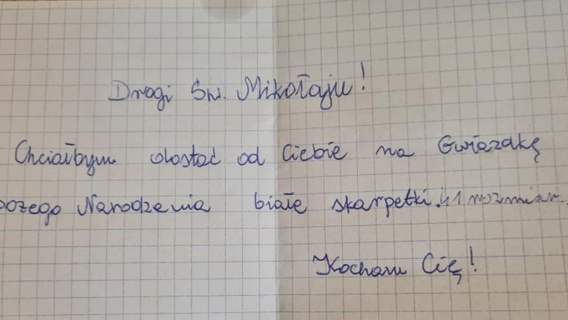 Drogi Św. Mikołaju!
Chciałbym dostać od Ciebie na Gwiazdkę
Bożego Narodzenia białe skarpetki. 41 rozmiar.
Kocham Cię!